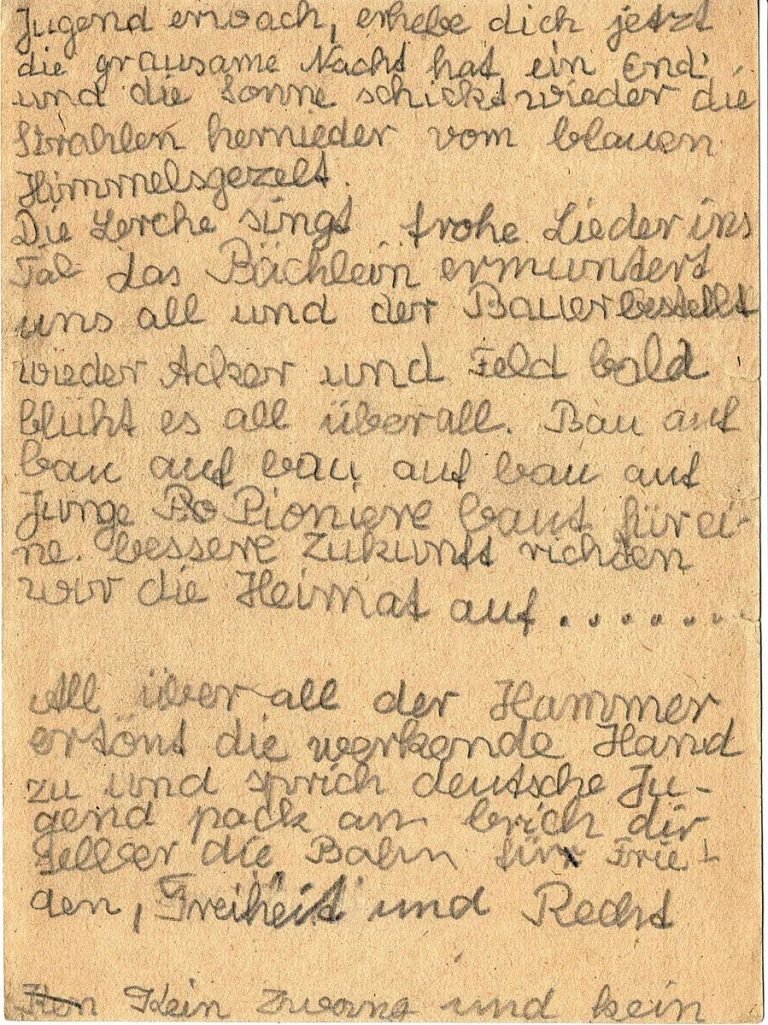 Jugend erwach, erhebe dich jetzt
die grausame Nacht hat ein End'
und die Sonne schickt wieder die
Strahlen hernieder vom blauen
Himmelsgezelt.
Die Lerche singt frohe Lieder ins
Tal das Bächlein ermuntert
uns all und der Bauer bestellt
wieder Acker und Feld bald
blüht es all überall. Bau auf
bau auf bau auf bau auf
Junge Po Pioniere baut für ei-
ne. bessere Zukunft richten
wir die Heimat auf . . . . . . .
All über all der Hammer
ertönt die werkende Hand
zu und sprich deutsche Ju-
gend pack an brich dir
selber die Bahn für Frie-
den, Freiheit und Recht
Kein Zwang und kein